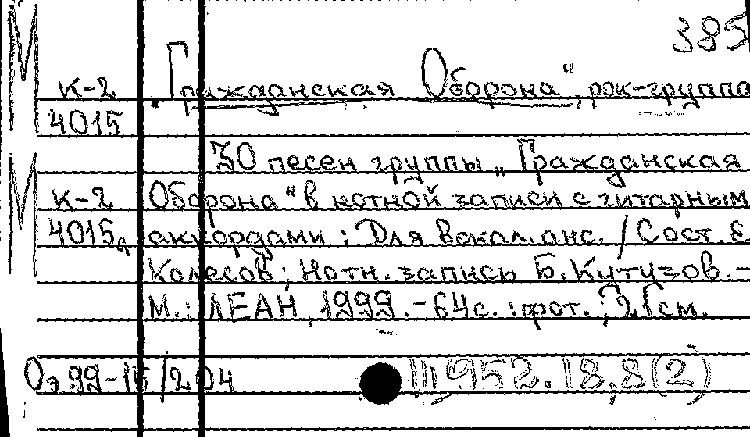 385
К-2 „Гражданская Оборона“, рок-группа
4015
30 песен группы „Гражданская
К-2 Оборона“ в нотной записи с гитарным
4015д аккордами : Для вокал. анс. / Сост. Е.
Колесов ; Нотн. запись Б. Кутузов. -
М. : ЛЕАН, 1999. - 64 с. : фот. ; 21 см.
Оэ 99-15/204 Щ952.18,8(2)